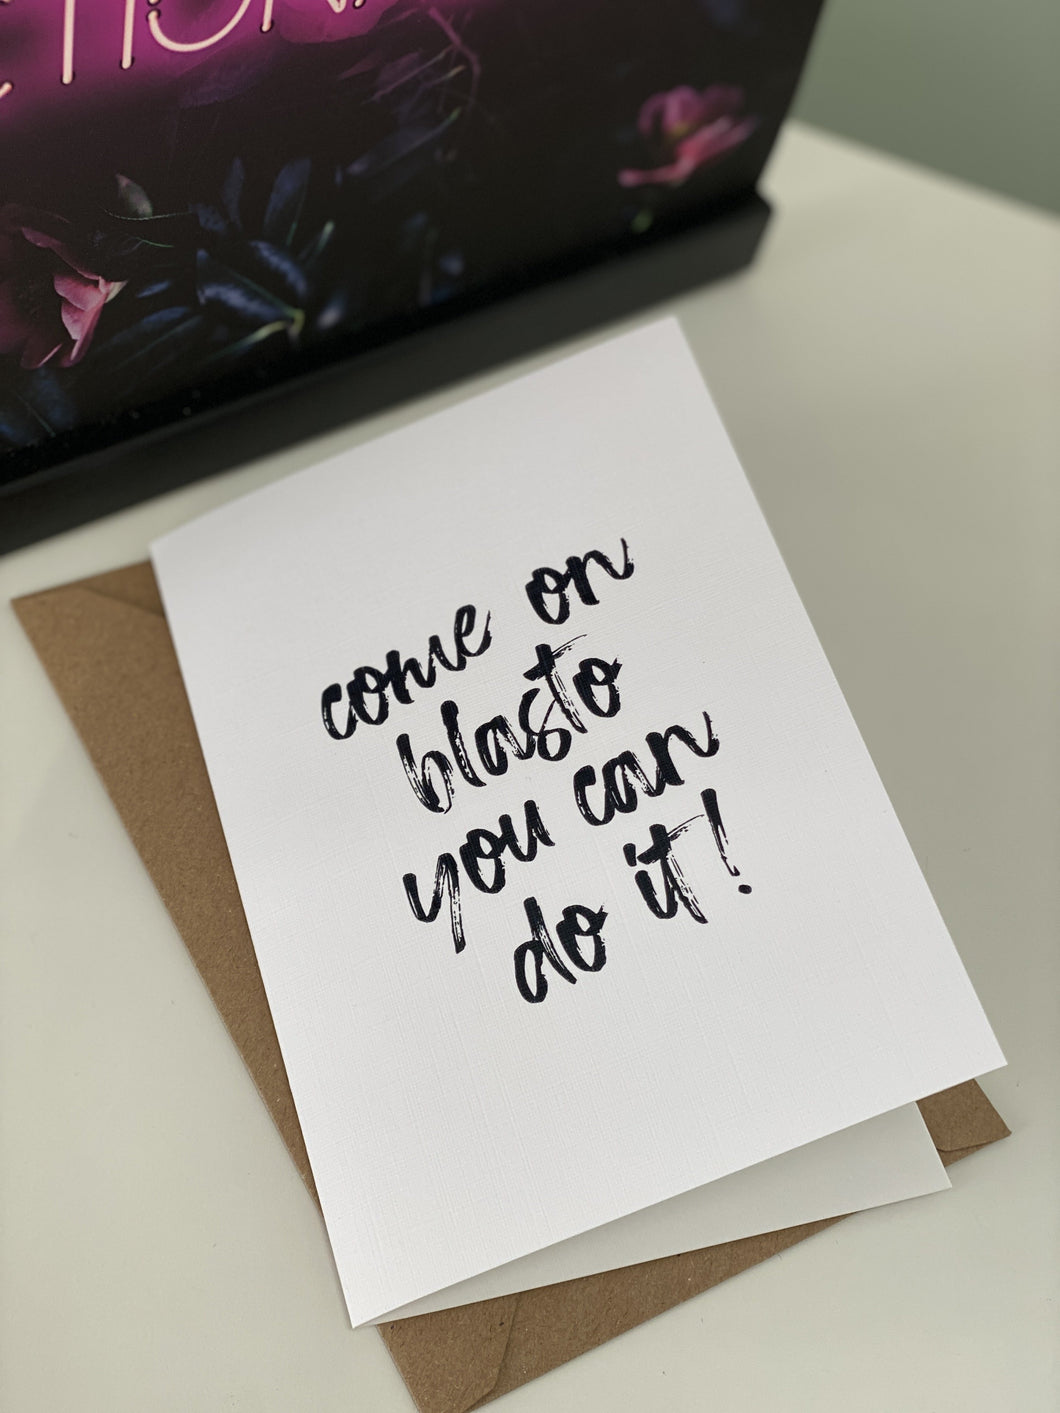 come on
blasto
you can
do it!